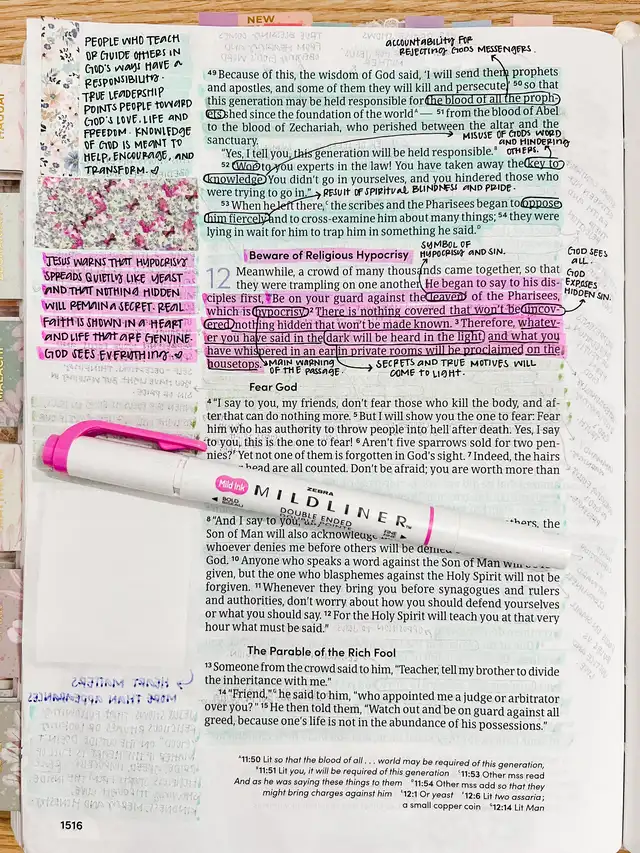 NEW
PEOPLE WHO TEACH
OR GUIDE OTHERS IN
GOD'S WAYS HAVE A
RESPONSIBILITY.
TRUE LEADERSHIP
POINTS PEOPLE TOWARD
GOD'S LOVE, LIFE AND
FREEDOM. KNOWLEDGE
OF GOD IS MEANT TO
HELP, ENCOURAGE, AND
TRANSFORM.
JESUS WARNS THAT HYPOCRISY
SPREADS QUIETLY LIKE YEAST
AND THAT NOTHING HIDDEN
WILL REMAIN A SECRET. REAL
FAITH IS SHOWN IN A HEART
AND LIFE THAT ARE GENUINE.
GOD SEES EVERYTHING.
HEART MATTERS
MORE THAN APPEARANCES
ACCOUNTABILITY FOR
REJECTING GODS MESSENGERS.
49 Because of this, the wisdom of God said, 'I will send them prophets
and apostles, and some of them they will kill and persecute,' 50 so that
this generation may be held responsible for the blood of all the proph-
ets shed since the foundation of the world — 51 from the blood of Abel
to the blood of Zechariah, who perished between the altar and the
sanctuary.
MISUSE OF GODS WORD
AND HINDERING
OTHERS.
"Yes, I tell you, this generation will be held responsible.
52 "Woe to you experts in the law! You have taken away the key to
knowledge. You didn't go in yourselves, and you hindered those who
were trying to go in."
RESULT OF SPIRITUAL BLINDNESS AND PRIDE.
53 When he left there, the scribes and the Pharisees began to oppose
him fiercely and to cross-examine him about many things; 54 they were
lying in wait for him to trap him in something he said.
SYMBOL OF
HYPOCRISY AND SIN.
GOD SEES
ALL.
GOD
EXPOSES
HIDDEN SIN.
Beware of Religious Hypocrisy
12 Meanwhile, a crowd of many thousands came together, so that
they were trampling on one another. He began to say to his dis-
ciples first, "Be on your guard against the leaven of the Pharisees,
which is hypocrisy. 2 There is nothing covered that won't be uncov-
ered, nothing hidden that won't be made known. 3 Therefore, whatev-
er you have said in the dark will be heard in the light, and what you
have whispered in an ear in private rooms will be proclaimed on the
housetops.
MAIN WARNING
OF THE PASSAGE.
SECRETS AND TRUE MOTIVES WILL
COME TO LIGHT.
Fear God
4 "I say to you, my friends, don't fear those who kill the body, and af-
ter that can do nothing more. 5 But I will show you the one to fear: Fear
him who has authority to throw people into hell after death. Yes, I say
to you, this is the one to fear! 6 Aren't five sparrows sold for two pen-
nies? Yet not one of them is forgotten in God's sight. 7 Indeed, the hairs
head are all counted. Don't be afraid; you are worth more than
Mild Ink
ZEBRA
MILDLINER™
DOUBLE ENDED
BOLD
FINE
8 "And I say to you, others, the
Son of Man will also acknowledge
whoever denies me before others will be denied
God. 10 Anyone who speaks a word against the Son of Man will be
given, but the one who blasphemes against the Holy Spirit will not be
forgiven. 11 Whenever they bring you before synagogues and rulers
and authorities, don't worry about how you should defend yourselves
or what you should say. 12 For the Holy Spirit will teach you at that very
hour what must be said."
The Parable of the Rich Fool
13 Someone from the crowd said to him, "Teacher, tell my brother to divide
the inheritance with me."
14 "Friend," he said to him, "who appointed me a judge or arbitrator
over you?" 15 He then told them, "Watch out and be on guard against all
greed, because one's life is not in the abundance of his possessions."
11:50 Lit so that the blood of all . . . world may be required of this generation,
11:51 Lit you, it will be required of this generation 11:53 Other mss read
And as he was saying these things to them 11:54 Other mss add so that they
might bring charges against him 12:1 Or yeast 12:6 Lit two assaria;
a small copper coin 12:14 Lit Man
1516